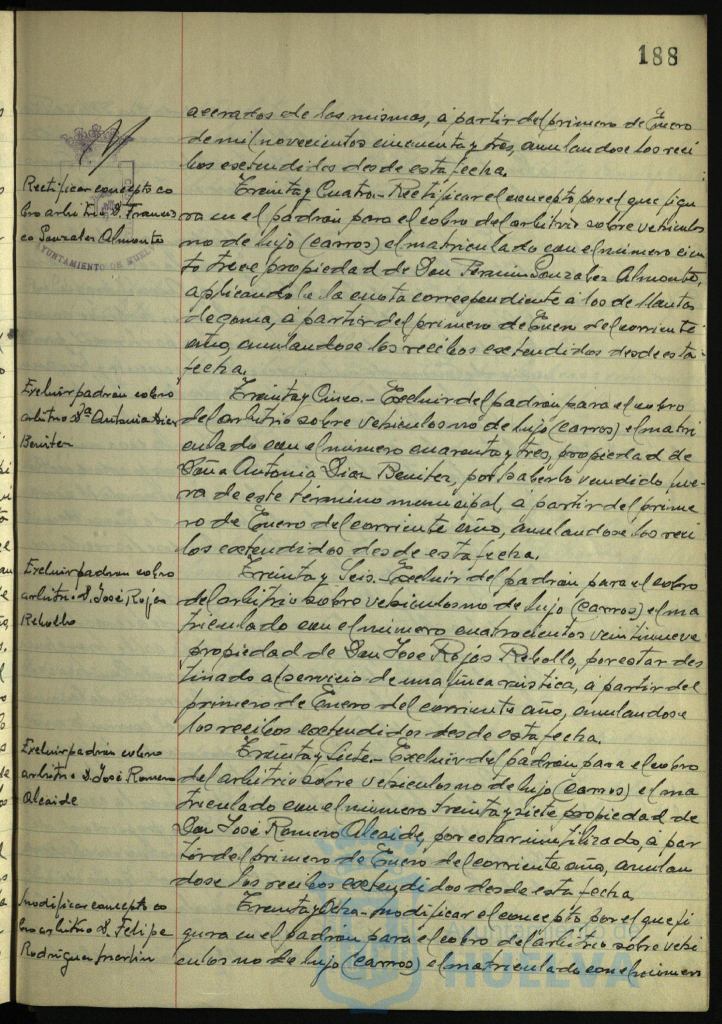 188
acerados de las mismas, á partir del primero de Enero
de mil novecientos cincuenta y tres, anulandose los reci
bos extendidos desde esta fecha.
Rectificar concepto co
bro arbitrio D. Francis
co Gonzalez Almonte
AYUNTAMIENTO DE HUELVA
Treinta y Cuatro.- Rectificar el concepto por el que figu
ra en el padrón para el cobro del arbitrio sobre vehiculos
no de lujo (carros) el matriculado con el número cien
to trece propiedad de Don Gonzalez Almonte,
aplicandole la cuota correspondiente á los de llantas
de goma, á partir del primero de Enero del corriente
año, anulandose los recibos extendidos desde esta
fecha.
Excluir padrón cobro
arbitrio Dª Antonia Diaz
Benitez
Treinta y Cinco.- Excluir del padrón para el cobro
del arbitrio sobre vehiculos no de lujo (carros) el matri
culado con el número cuarenta y tres, propiedad de
Doña Antonia Diaz Benitez, por haberlo vendido fue
ra de este término municipal, á partir del prime
ro de Enero del corriente año, anulandose los reci
bos extendidos desde esta fecha.
Excluir padrón cobro
arbitrio D. José Rojas
Rebollo
Treinta y Seis.- Excluir del padrón para el cobro
del arbitrio sobre vehiculos no de lujo (carros) el ma
triculado con el número cuatrocientos veintinueve
propiedad de Don José Rojas Rebollo, por estar des
tinado al servicio de una finca rústica, á partir del
primero de Enero del corriente año, anulandose
los recibos extendidos desde esta fecha.
Excluir padrón cobro
arbitrio D. José Romero
Alcaide
Treinta y Siete.- Excluir del padrón para el cobro
del arbitrio sobre vehiculos no de lujo (carros) el ma
triculado con el número treinta y siete propiedad de
Don José Romero Alcaide, por estar inutilizado, á par
tir del primero de Enero del corriente año, anulan
dose los recibos extendidos desde esta fecha.
Modificar concepto co
bro arbitrio D. Felipe
Rodriguez Martin
Treinta y Ocho.- Modificar el concepto por el que fi
gura en el padrón para el cobro del arbitrio sobre vehi
culos no de lujo (carros) el matriculado con el número
Ayuntamiento de
HUELVA